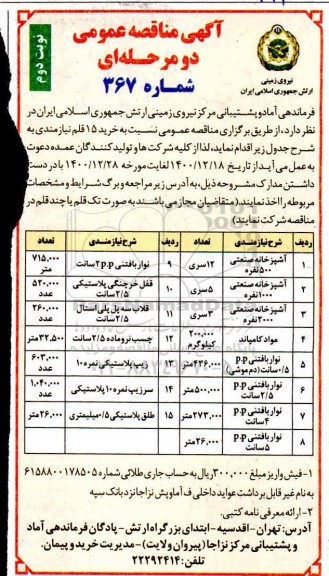 آگهی مناقصه عمومی
دو مرحله‌ای
شماره ۳۶۷
نوبت دوم
نیروی زمینی
ارتش جمهوری اسلامی ایران
فرماندهی آماد و پشتیبانی مرکز نیروی زمینی ارتش جمهوری اسلامی ایران در
نظر دارد، از طریق برگزاری مناقصه عمومی نسبت به خرید ۱۵ قلم نیازمندی به
شرح جدول زیر اقدام نماید، لذا از کلیه شرکت‌ها و تولیدکنندگان عمده دعوت
به عمل می‌آید از تاریخ ۱۴۰۰/۱۲/۱۸ لغایت مورخه ۱۴۰۰/۱۲/۲۸ با در دست
داشتن مدارک مشروحه ذیل، به آدرس زیر مراجعه و برگ شرایط و مشخصات
مربوطه را اخذ نمایند (متقاضیان مجاز می‌باشند به صورت تک قلم یا چند قلم در
مناقصه شرکت نمایند)
ردیف شرح نیازمندی تعداد ردیف شرح نیازمندی تعداد
۱ آشپزخانه صنعتی ۵۰۰ نفره ۱۳ سری ۹ نوار بافتنی p.p ۲ سانت ۷۱۵،۰۰۰ متر
۲ آشپزخانه صنعتی ۱۰۰۰ نفره ۵ سری ۱۰ قفل خرچنگی پلاستیکی ۲/۵ سانت ۵۲۰،۰۰۰ عدد
۳ آشپزخانه صنعتی ۲۰۰۰ نفره ۳ سری ۱۱ قلاب سه پل پلی استال ۲/۵ سانت ۲۶۰،۰۰۰ عدد
۴ مواد کامپاند ۲۰۰،۰۰۰ کیلوگرم ۱۲ چسب نر و ماده ۲/۵ سانت ۳۲،۵۰۰ متر
۵ نوار بافتنی p.p ۰/۵ سانت (دم موشی) ۴۳۶،۰۰۰ متر ۱۳ زیپ پلاستیکی نمره ۱۰ ۶۰۳،۰۰۰ عدد
۶ نوار بافتنی p.p ۲/۵ سانت ۵۰۰،۰۰۰ متر ۱۴ سرزیپ نمره ۱۰ پلاستیکی ۱،۰۴۰،۰۰۰ عدد
۷ نوار بافتنی p.p ۴ سانت ۲۷۳،۰۰۰ متر ۱۵ طلق پلاستیکی ۰/۵ میلیمتری ۲۶،۰۰۰ متر
۸ نوار بافتنی p.p ۵ سانت ۲۶،۰۰۰ متر
۱- فیش واریز مبلغ ۳۰۰،۰۰۰ ریال به حساب جاری طلائی شماره ۶۱۵۸۸۰۰۱۷۸۵۰۵
به نام غیر قابل برداشت عواید داخلی ف آماد و پش نزاجا نزد بانک سپه
۲- ارائه معرفی نامه کتبی.
آدرس: تهران - اقدسیه - ابتدای بزرگراه ارتش - پادگان فرماندهی آماد
و پشتیبانی مرکز نزاجا (پیروان ولایت) - مدیریت خرید و پیمان.
تلفن: ۲۲۲۹۲۴۱۴